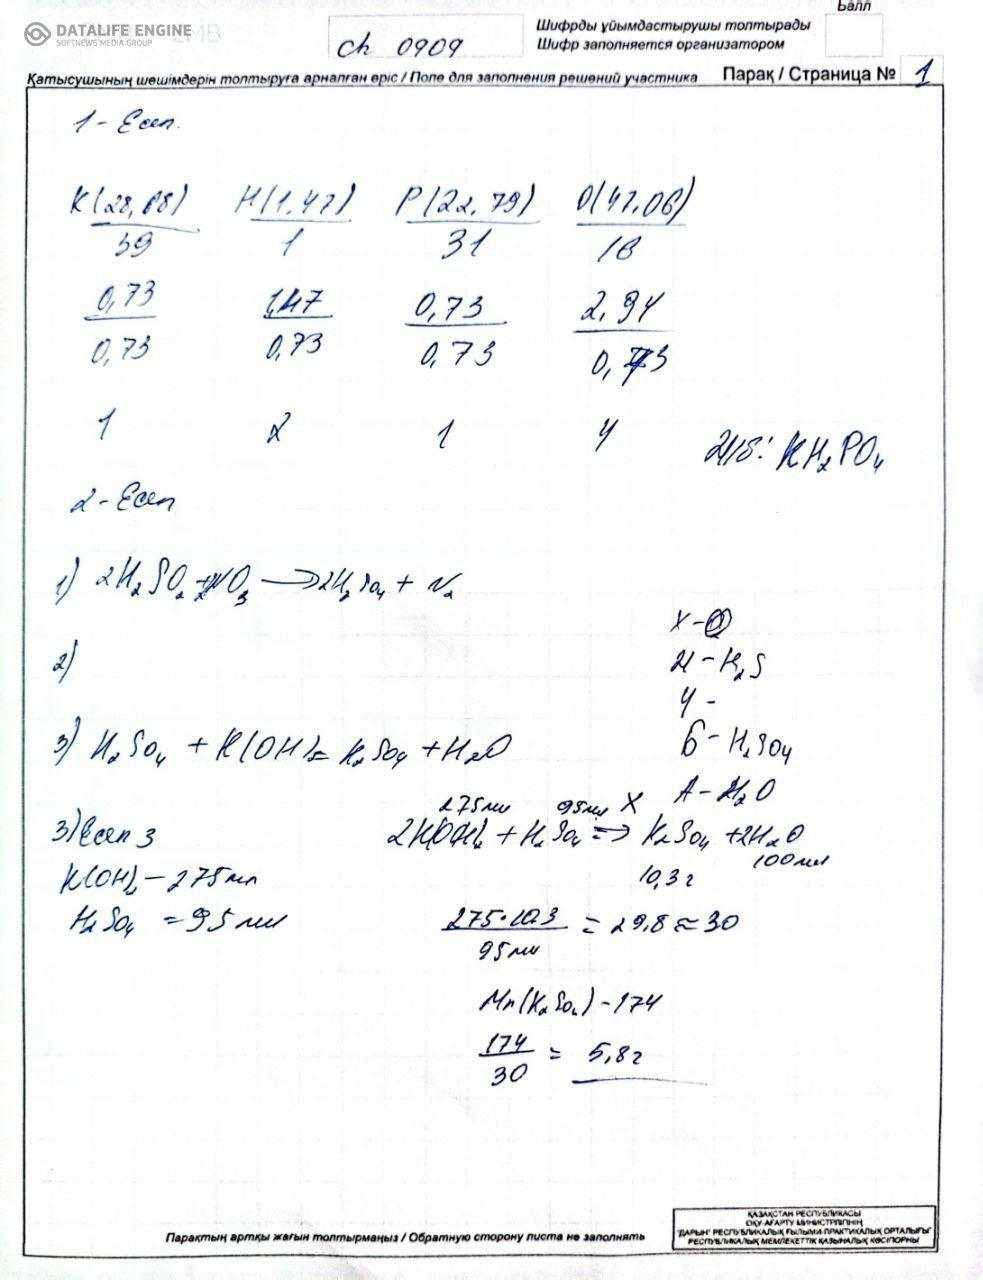 Балл
DATALIFE ENGINE
SOFTNEWS MEDIA GROUP
ch 0909
Шифрды ұйымдастырушы толтырады
Шифр заполняется организатором
Қатысушының шешімдерін толтыруға арналған өріс / Поле для заполнения решений участника
Парақ / Страница № 1
1 - Есеп.
K(28,68) H(1.47) P(22,79) O(47,06)
39 1 31 16
0,73 1,47 0,73 2,94
0,73 0,73 0,73 0,73
1 2 1 4
Ж/б: KH₂PO₄
2 - Есеп
1) 2H₂SO₂ + 2NO₃ → 2H₂SO₄ + N₂
X -
2)
И - H₂S
Ч -
3) H₂SO₄ + K(OH)₂ = K₂SO₄ + H₂O
Б - H₂SO₄
А - H₂O
275мл 95мл X
3) Есеп 3
2K(OH)₂ + H₂SO₄ => K₂SO₄ + 2H₂O
10,3г 100мл
K(OH)₂ - 275мл
H₂SO₄ = 95мл
275·10.3 = 29,8 ≈ 30
95мл
Mr(K₂SO₄) - 174
174 = 5,8г
30
Парақтың артқы жағын толтырмаңыз / Обратную сторону листа не заполнять
ҚАЗАҚСТАН РЕСПУБЛИКАСЫ
ОҚУ-АҒАРТУ МИНИСТРЛІГІНІҢ
"ДАРЫН" РЕСПУБЛИКАЛЫҚ ҒЫЛЫМИ-ПРАКТИКАЛЫҚ ОРТАЛЫҒЫ"
РЕСПУБЛИКАЛЫҚ МЕМЛЕКЕТТІК ҚАЗЫНАЛЫҚ КӘСІПОРНЫ